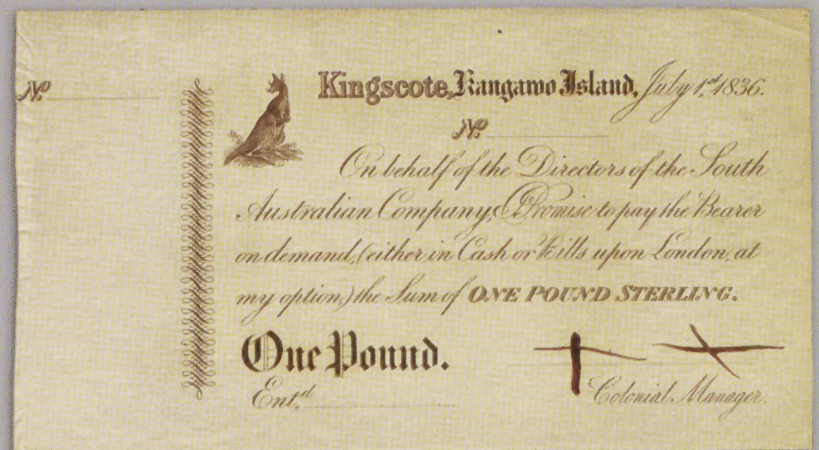 No
Kingscote, Kangaroo Island, July 1st 1836.
No
On behalf of the Directors of the South
Australian Company, I Promise to pay the Bearer
on demand, (either in Cash or Bills upon London, at
my option,) the Sum of ONE POUND STERLING.
One Pound.
Entd.
Colonial Manager.